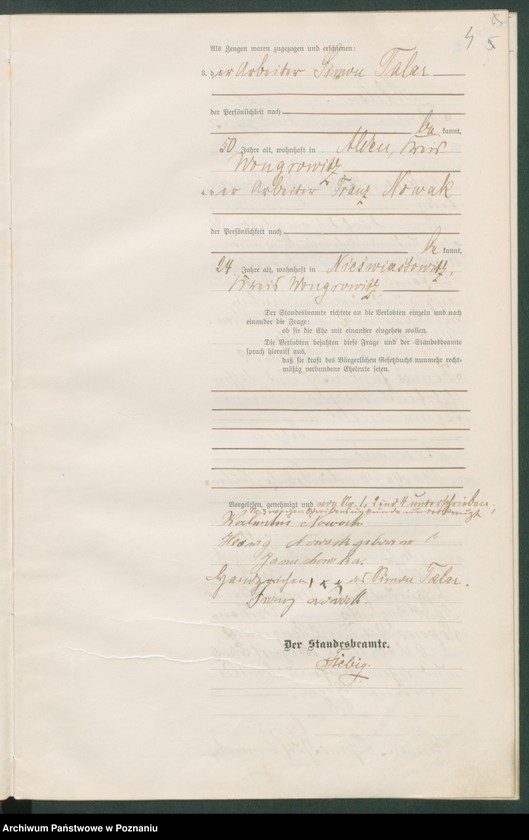 4 5
Als Zeugen waren zugezogen und erschienen:
3. der Arbeiter Simon Talar
der Persönlichkeit nach
be kannt,
50 Jahre alt, wohnhaft in Alden, Kreis
Wongrowitz
4. der Arbeiter Franz Nowak
der Persönlichkeit nach
be kannt,
24 Jahre alt, wohnhaft in
Kreis Wongrowitz
Der Standesbeamte richtete an die Verlobten einzeln und nach
einander die Frage:
ob sie die Ehe mit einander eingehen wollen.
Die Verlobten bejahten diese Frage und der Standesbeamte
sprach hierauf aus,
daß sie kraft des Bürgerlichen Gesetzbuchs nunmehr recht-
mäßig verbundene Eheleute seien.
Vorgelesen, genehmigt und von Nr. 1, 2 und 4 unterschrieben.
Nowak
Hedwig Nowak geborene
Handzeichen xxx des Simon Talar.
Franz Nowak.
Der Standesbeamte.
Archiwum Państwowe w Poznaniu